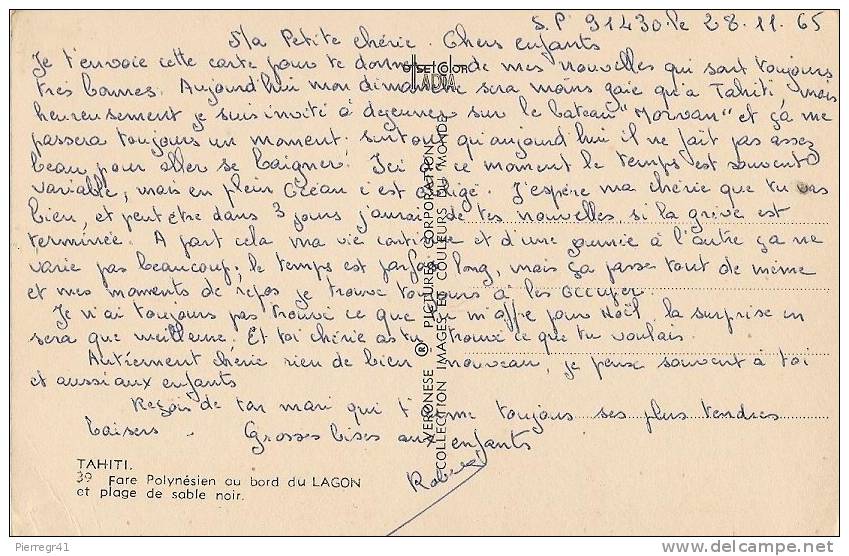 S.P 91430. le 28.11.65
Ma Petite chérie. Chers enfants
Je t'envoie cette carte pour te donner de mes nouvelles qui sont toujours
très bonnes. Aujourd'hui mon dimanche sera moins gaie qu'a Tahiti mais
heureusement je suis invité à dejeuner sur le bateau "Morvan" et çà me
passera toujours un moment. surtout qu'aujourd'hui il ne fait pas assez
beau pour aller se baigner. Ici en ce moment le temps est souvent
variable, mais en plein Océan c'est obligé. J'espère ma chérie que tu vas
bien, et peut être dans 3 jours j'aurai de tes nouvelles si la grève est
terminée. A part cela ma vie continue et d'une journée à l'autre ça ne
varie pas beaucoup, le temps est parfois long, mais ça passe tout de même
et mes moments de repos je trouve toujours à les occuper.
Je n'ai toujours pas trouvé ce que tu m'offre pour Noël. la surprise en
sera que meilleure. Et toi chérie as tu trouvé ce que tu voulais.
Autrement chérie rien de bien nouveau, je pense souvent à toi
et aussi aux enfants
Reçois de ton mari qui t'aime toujours ses plus tendres
baisers. Grosses bises aux enfants
OFFSET COLOR
LADIA
VERONESE ® PICTURES CORPORATION
COLLECTION IMAGES ET COULEURS DU MONDE
TAHITI.
39 Fare Polynésien au bord du LAGON
et plage de sable noir.
Pierregr41
delcampe.net